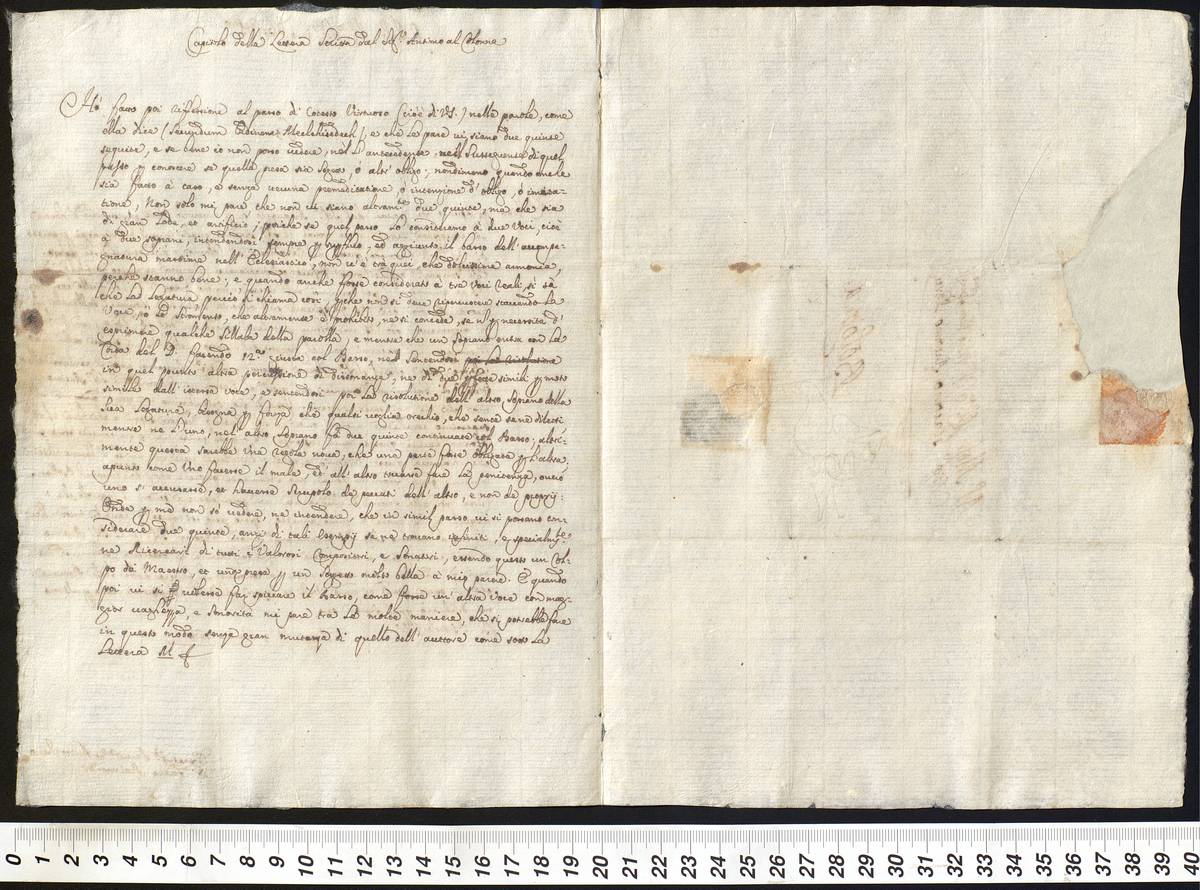 Capitolo della Lettera Scritta dal Sig.r Antimo al Colonna
Hò fatto poi riflessione al passo di cotesto Virtuoso (cioè di VS.) nelle parole, come
ella dice (secundum Ordinem Melchisedech), e che le pare vi siano due quinte
seguite, e se bene io non posso vedere, nel l'antecedente, nell susseguente di quel
passo p conoscere se quella presa sia sogetto, ò altr' obligo; nondimeno quando anche
sia fatto à caso, e senza veruna premeditatione, o intenzione d' obligo, ò imita-
tione, Non solo mi pare che non vi siano altramente due quinte, ma che sia
di gran Lode, et artificio; poiche se quel passo lo consideriamo à due Voci, cioè
à due soprani, intendendosi sempre p , et aggiunto il basso dell' accompa-
gnatura massime nell' Eclesiastico, non vi è trà quei, che dolcissima armonia,
perche stanno bene; e quando anche fosse considerato à tre Voci reali, si sà
che la Legatura perciò si chiama così, perche non si deve ripercuotere staccando la
Voce, ò lo stromento, che altramente è prohibito, ne si concede, se n p necessità d'
esprimere qualche sillaba della parolla, e mentre che un Soprano entra con la
corda del D. facendo 12.a ò quinta col Basso, non sentendosi poi la risolutione
in quel punto altra percussione di dissonanza, ne di due forze simili p moto
simile dall' istessa voce, e sentendosi poi la risolutione dell' altro soprano della
sua Legatura, bisogna p forza che qualsivoglia orechio, che sente sene diletti
mentre ne l'uno, nel altro Soprano fà due quinte continuate col Basso; altri-
mente questa sarebbe Una regola nova, che una parte fosse obligata p l'altra,
apunto come Uno facesse il male, et all' altro toccasse fare la penitenza, overo
uno si accusasse, et havesse scrupolo de peccati dell' altro, e non de proprij:
Onde p mè non sò vedere, ne intendere, che in simil passo vi si possano con-
siderare due quinte, anzi di tali esempij se ne trovano infiniti, e specialm.te
ne Ricercari di tutti i Valorosi Compositori, e Sonatori, essendo questo un Col-
po da Maestro, et una presa p un Sogetto molto bella à mio parere. E quando
poi vi si volesse far spiccare il Basso, come fosse un' altra voce con mag-
gior vaghezza, e sonorità mi pare trà le molte maniere, che si potrebbe fare
in questo modo senza gran mutanza di quello dell' auttore come sotto la
Lettera M